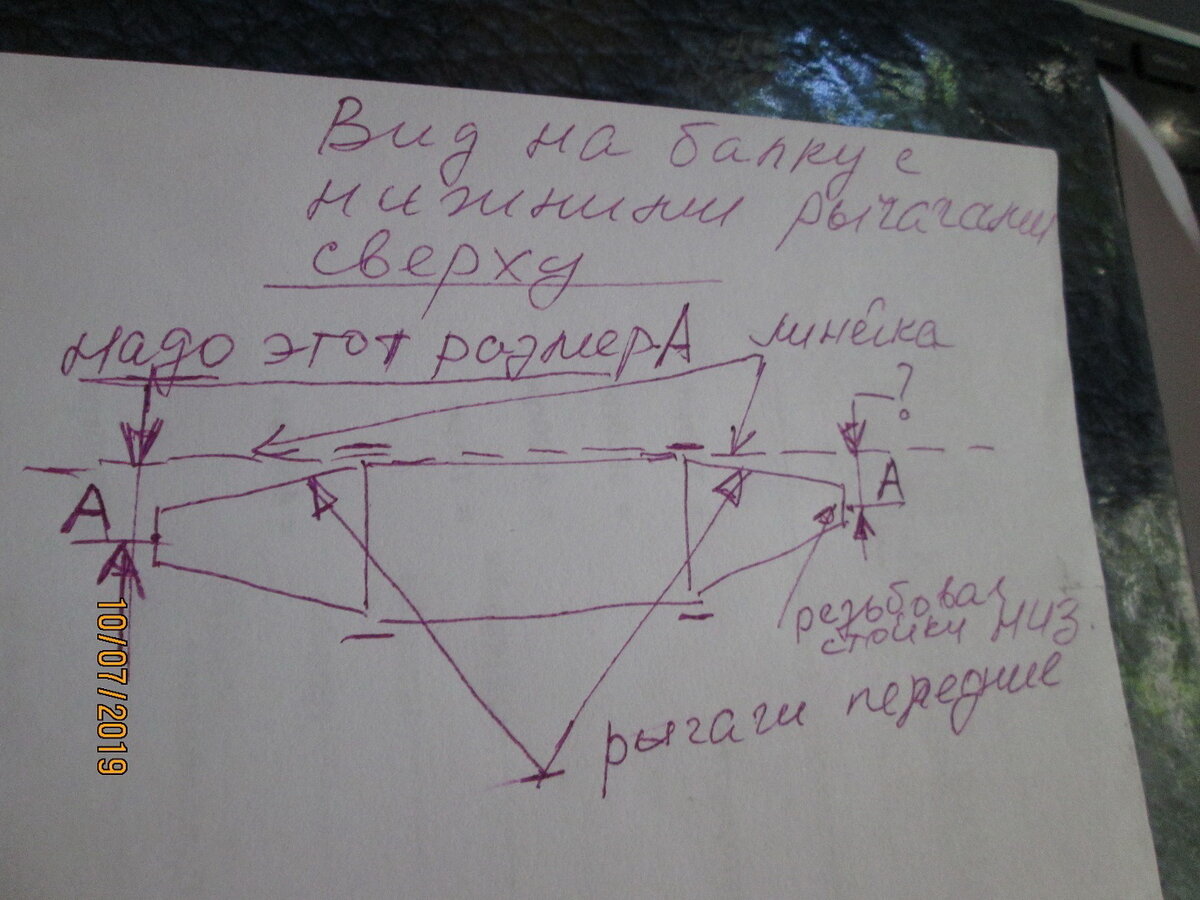 Вид на балку с
нижними рычагами
сверху
надо этот размер А
линейка
?
А
А
резьбовая
стойки низ.
рычаги передние
10/07/2019